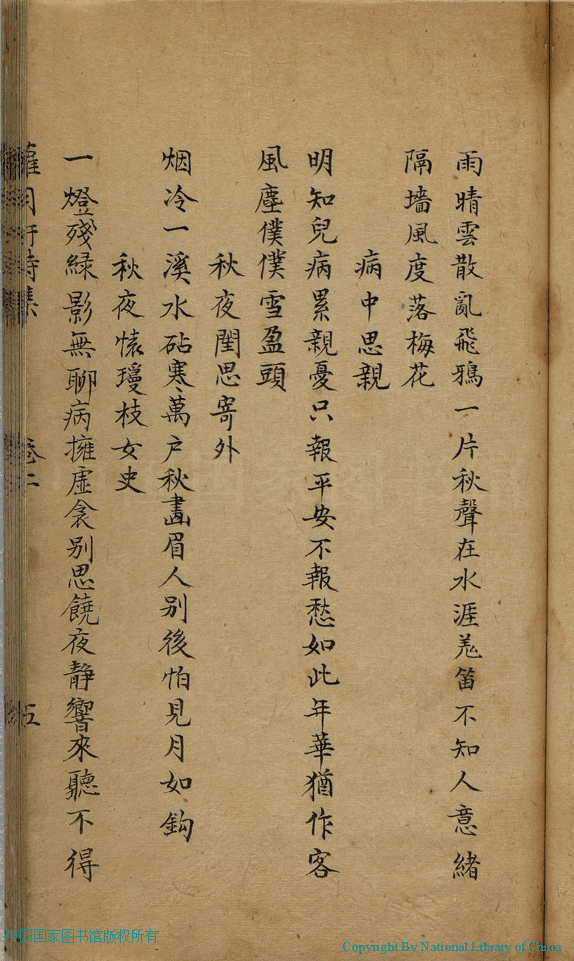 雨晴雲散亂飛鴉一片秋聲在水涯羗笛不知人意緒
隔墻風度落梅花
病中思親
明知兒病累親憂只報平安不報愁如此年華猶作客
風塵僕僕雪盈頭
秋夜閨思寄外
烟冷一溪水砧寒萬户秋畫眉人别後怕見月如鈎
秋夜懷瓊枝女史
一燈殘緑影無聊病擁虛衾别思饒夜静響來聽不得
詩集 卷二 五
中国国家图书馆版权所有
Copyright By National Library of China